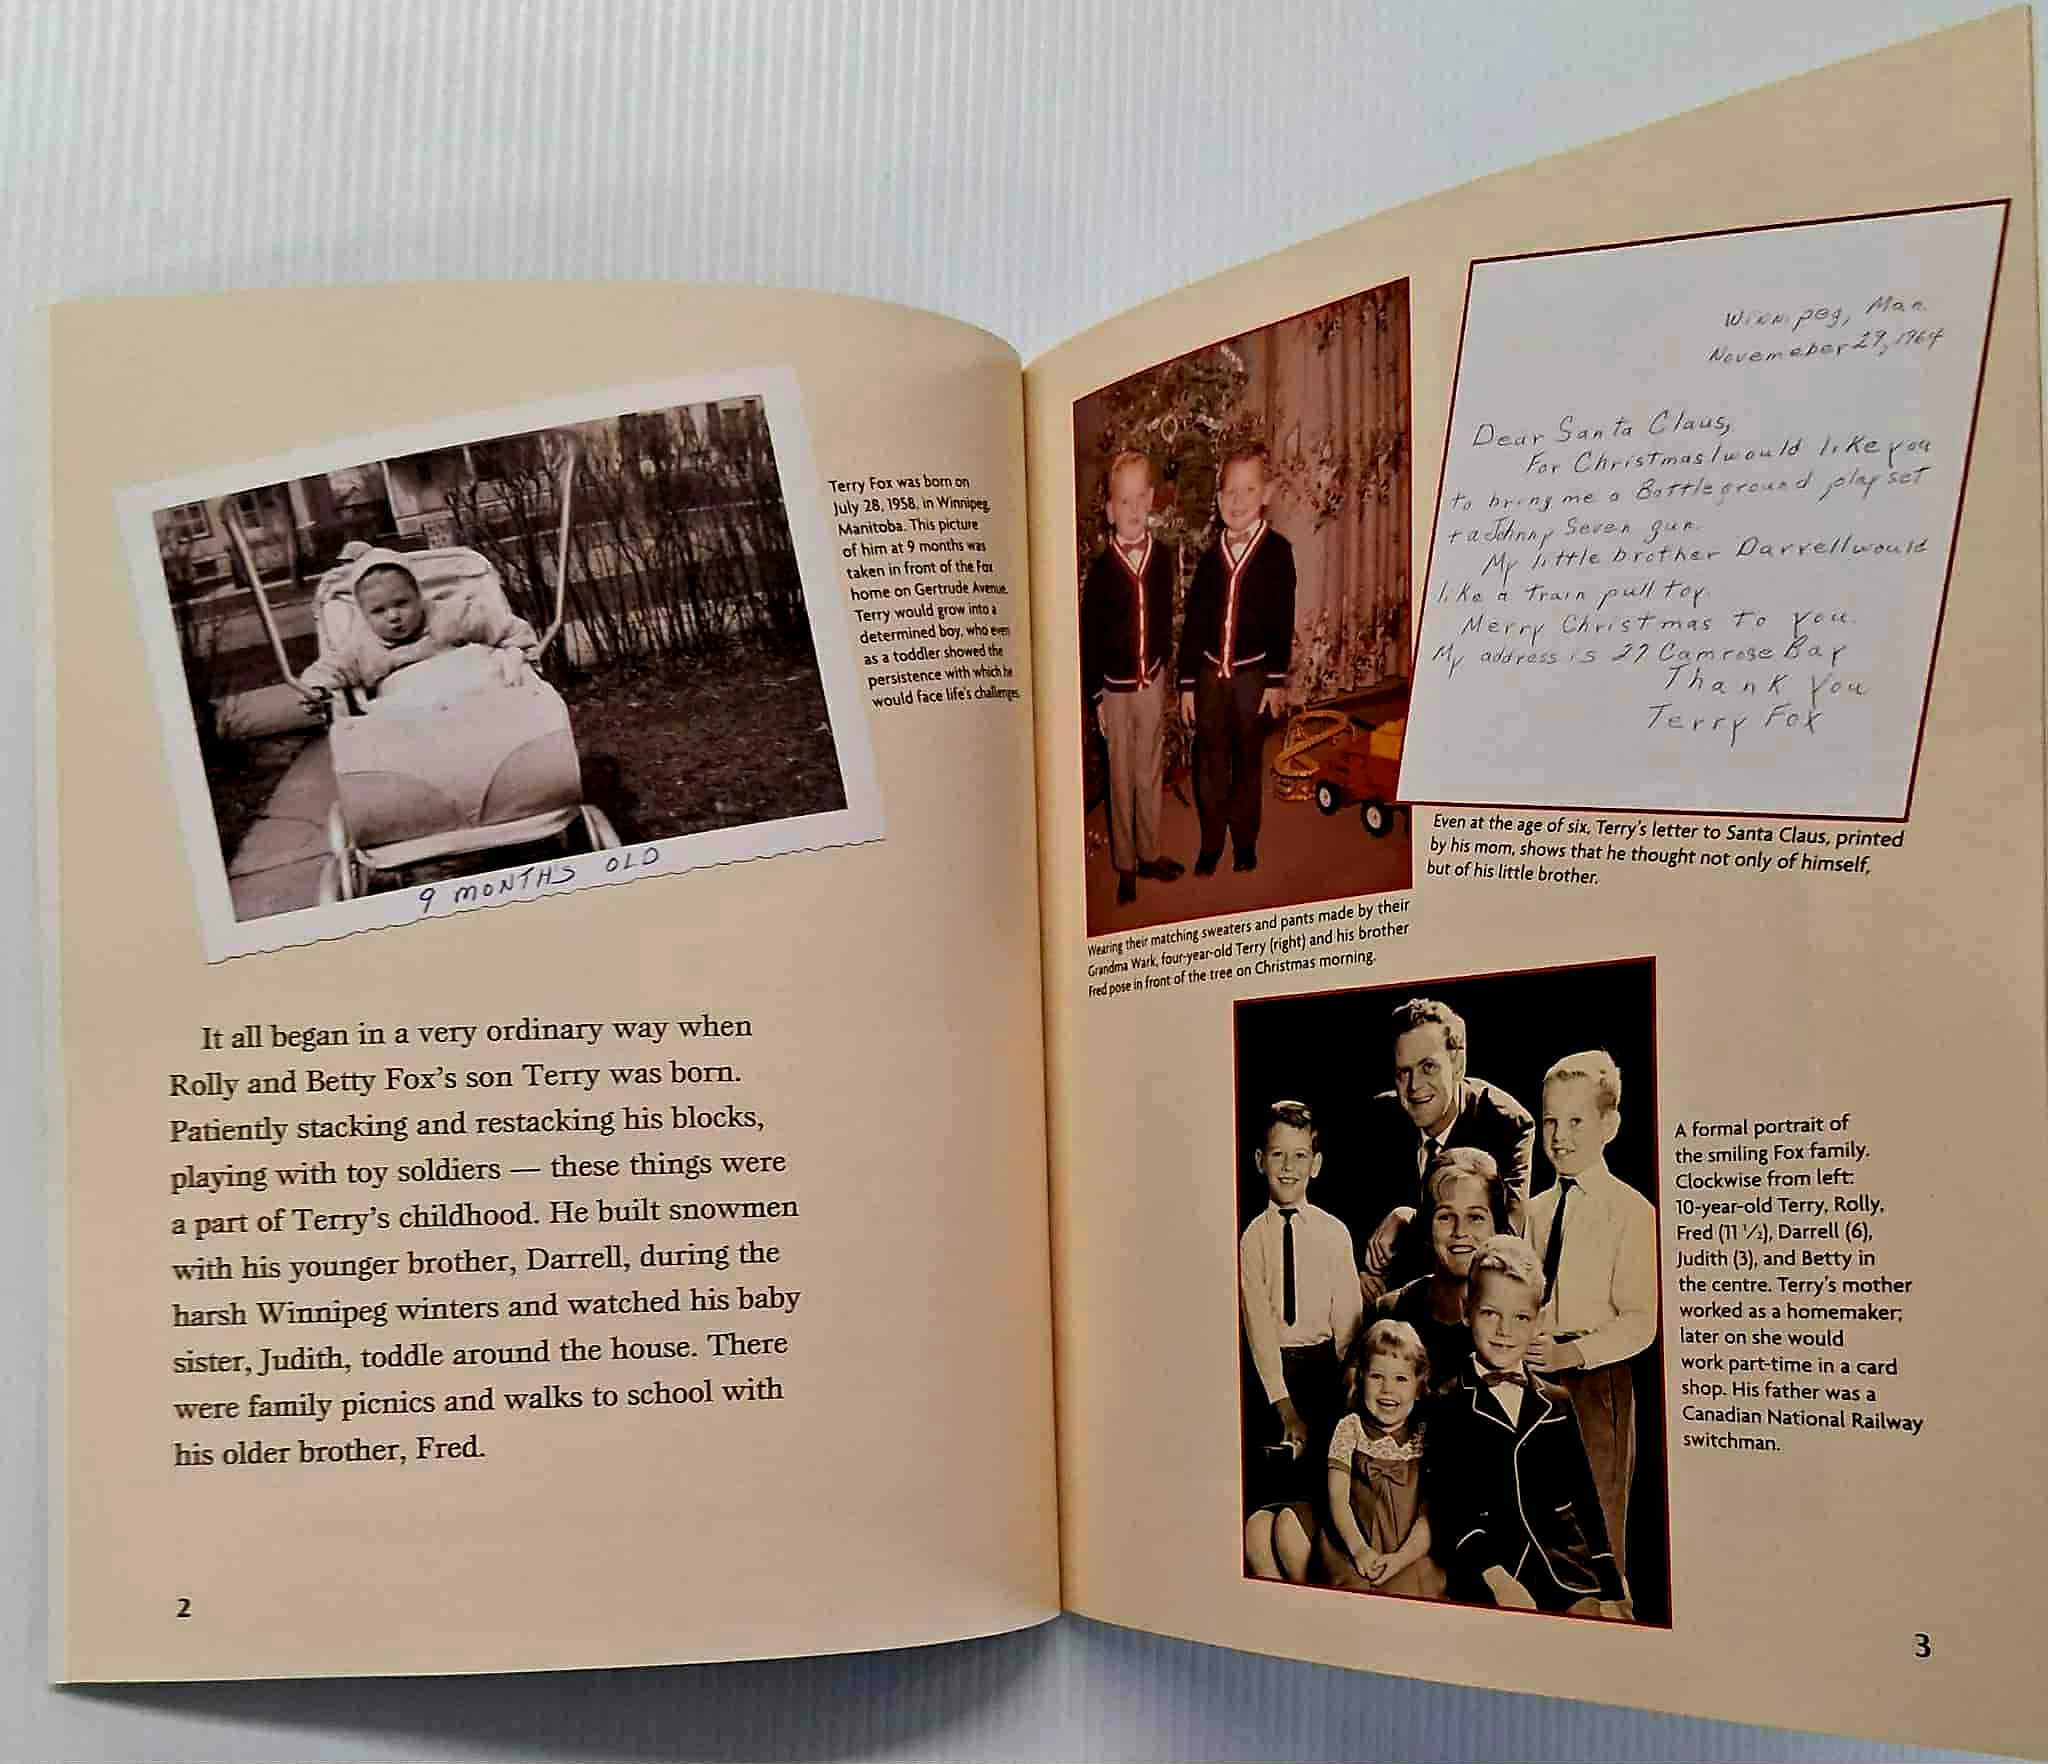 Terry Fox was born on
July 28, 1958, in Winnipeg,
Manitoba. This picture
of him at 9 months was
taken in front of the Fox
home on Gertrude Avenue.
Terry would grow into a
determined boy, who even
as a toddler showed the
persistence with which he
would face life's challenges.
9 MONTHS OLD
It all began in a very ordinary way when
Rolly and Betty Fox's son Terry was born.
Patiently stacking and restacking his blocks,
playing with toy soldiers — these things were
a part of Terry's childhood. He built snowmen
with his younger brother, Darrell, during the
harsh Winnipeg winters and watched his baby
sister, Judith, toddle around the house. There
were family picnics and walks to school with
his older brother, Fred.
2
Winnipeg, Man.
Novemeber 29, 1964
Dear Santa Claus,
For Christmas I would like you
to bring me a Battleground play set
+ a Johnny Seven gun.
My little brother Darrell would
like a train pull toy.
Merry Christmas to you.
My address is 27 Camrose Bay
Thank you
Terry Fox
Even at the age of six, Terry's letter to Santa Claus, printed
by his mom, shows that he thought not only of himself,
but of his little brother.
Wearing their matching sweaters and pants made by their
Grandma Wark, four-year-old Terry (right) and his brother
Fred pose in front of the tree on Christmas morning.
A formal portrait of
the smiling Fox family.
Clockwise from left:
10-year-old Terry, Rolly,
Fred (11 ½), Darrell (6),
Judith (3), and Betty in
the centre. Terry's mother
worked as a homemaker;
later on she would
work part-time in a card
shop. His father was a
Canadian National Railway
switchman.
3